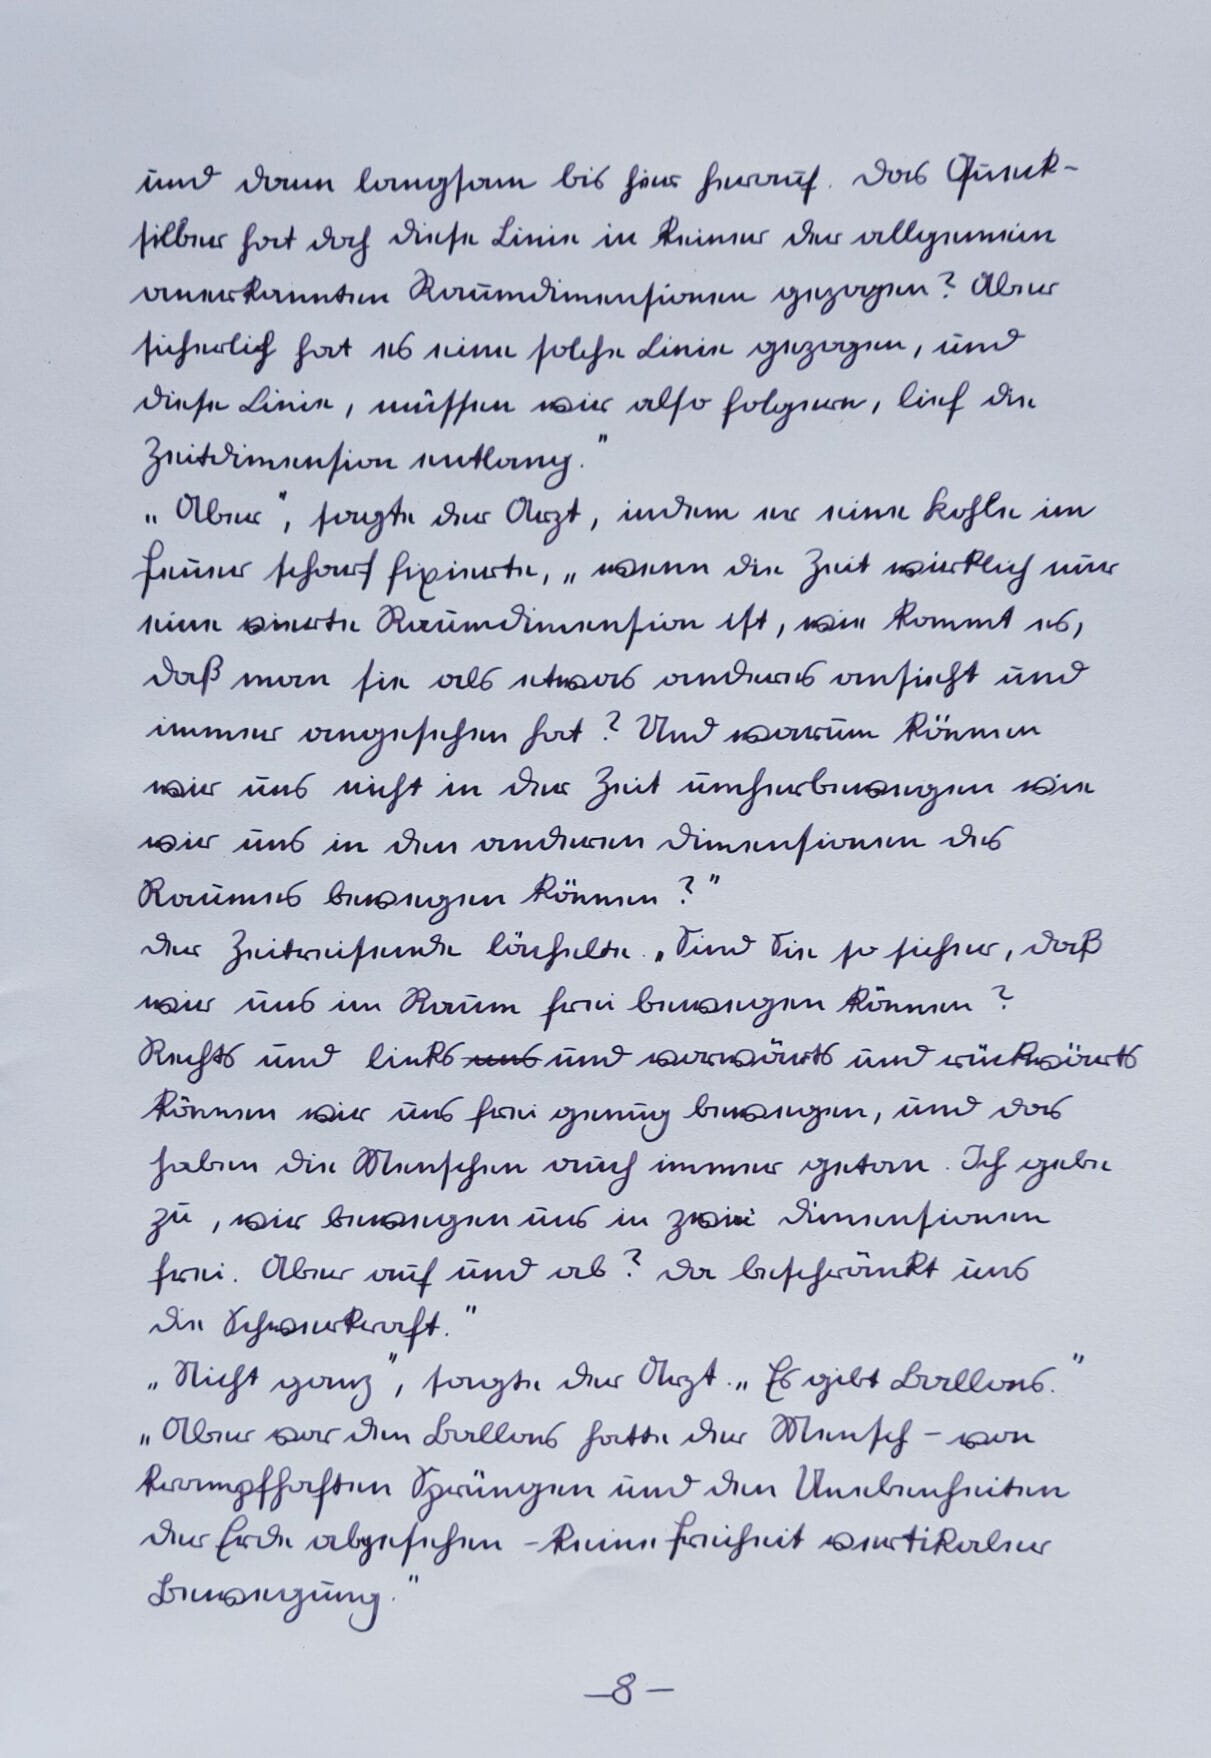 und dann langsam bis hier herauf. Das Queck-
silber hat doch diese Linie in keiner der allgemein
anerkannten Raumdimensionen gezogen? Aber
sicherlich hat es eine solche Linie gezogen, und
diese Linie, müssen wir also folgern, lief die
Zeitdimension entlang."
„Aber", sagte der Arzt, indem er eine Kohle im
Feuer scharf fixierte, „wenn die Zeit wirklich nur
eine vierte Raumdimension ist, wie kommt es,
daß man sie als etwas anderes ansieht und
immer angesehen hat? Und warum können
wir uns nicht in der Zeit umherbewegen wie
wir uns in den anderen Dimensionen des
Raumes bewegen können?"
Der Zeitreisende lächelte. „Sind Sie so sicher, daß
wir uns im Raum frei bewegen können?
Rechts und links uns und vorwärts und rückwärts
können wir uns frei genug bewegen, und das
haben die Menschen auch immer getan. Ich gebe
zu, wir bewegen uns in zwei Dimensionen
frei. Aber auf und ab? Da beschränkt uns
die Schwerkraft."
„Nicht ganz", sagte der Arzt. „Es gibt Ballons."
„Aber vor den Ballons hatte der Mensch – von
krampfhaften Sprüngen und den Unebenheiten
der Erde abgesehen – keine Freiheit vertikaler
Bewegung."
– 8 –